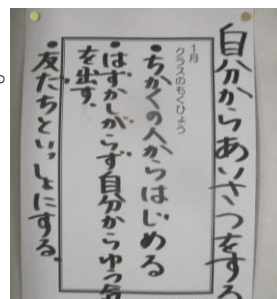 自分からあいさつをする
1月
クラスのもくひょう
・ちかくの人からはじめる
・はずかしがらず自分からゆう気
を出す。
・友だちといっしょにする。